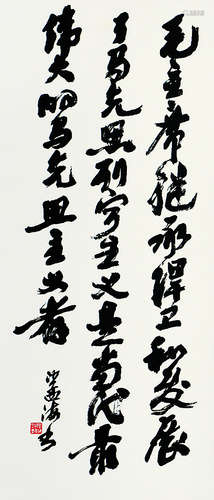 毛主席继承捍卫和发展
了马克思列宁主义是当代最
伟大的马克思主义者
沙孟海书